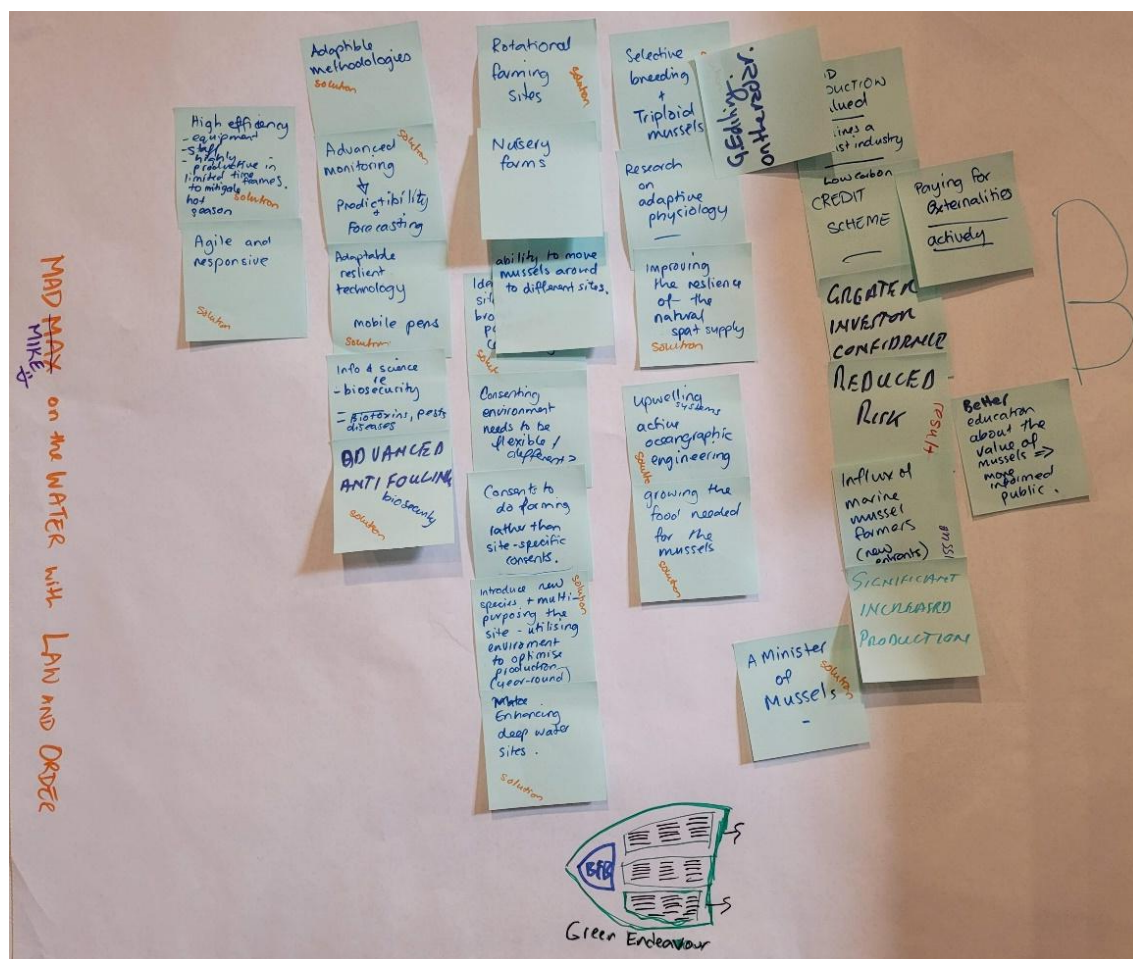 MAD MAX on the WATER with LAW AND ORDER
MIKE
High efficiency
- equipment
- staff
- highly
productive in
limited time frames.
to mitigate
hot
season
solution
Agile and
responsive
solution
Adaptible
methodologies
solution
Advanced
monitoring
Predictibility
+
Forecasting
solution
Adaptable
reslient
technology
mobile pens
solution
Info & science
re
- biosecurity
= Biotoxins, pests
diseases
ADVANCED
ANTI FOULING
biosecurity
solution
Rotational
farming
sites
solution
Nursery
farms
ability to move
mussels around
to different sites.
Consenting
environment
needs to be
flexible /
different
Consents to
do farming
rather than
site-specific
consents.
Introduce new
species + multi-
purposing the
site - utilising
enviroment
to optimise
production
(year-round)
solution
Enhancing
deep water
sites.
solution
Selective
breeding
+
Triploid
mussels
G.Editing.
on the radar.
Research
on
adaptive
physiology
Improving
the reslience
of the
natural
spat supply
solution
upwelling
systems
active
oceangraphic
engineering
growing the
food needed
for the
mussels
solution
lued
industry
Low carbon
CREDIT
SCHEME
Paying for
Externalities
actively
GREATER
INVESTOR
CONFIDENCE
REDUCED
RISK
result
Better
education
about the
value of
mussels =>
more
informed
public.
Influx of
marine
mussel
farmers
(new
entrants)
issue
SIGNIFICANT
INCREASED
PRODUCTION
A Minister
of
Mussels
solution
B
Green Endeavour